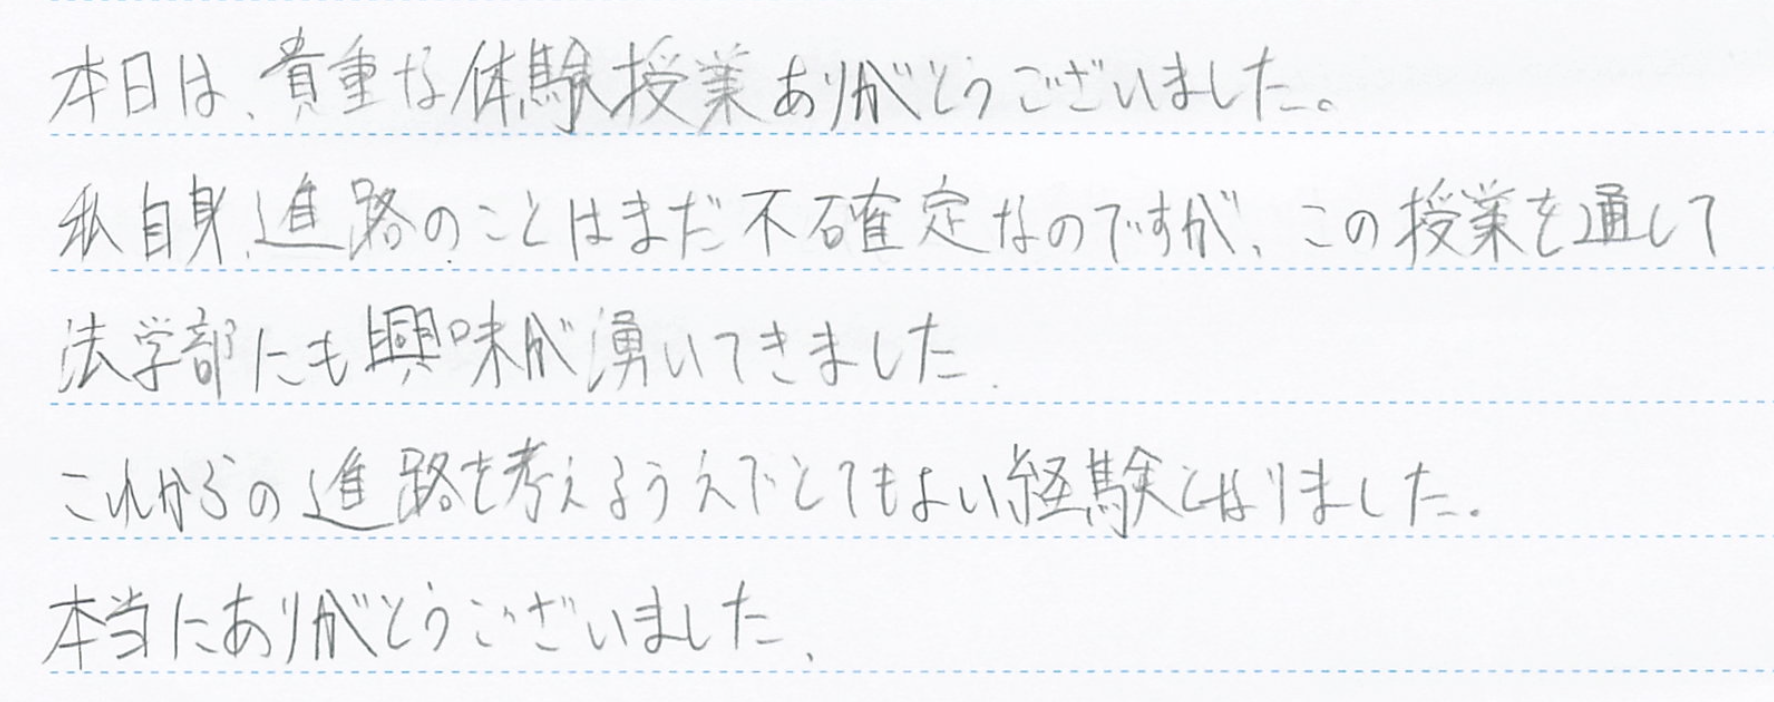 本日は、貴重な体験授業ありがとうございました。
私自身、進路のことはまだ不確定なのですが、この授業を通して
法学部にも興味が湧いてきました.
これからの進路を考えるうえでとてもよい経験となりました.
本当にありがとうございました、